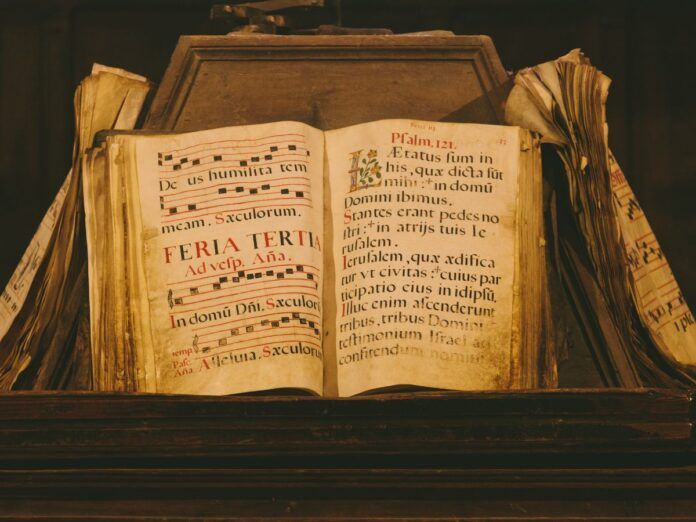 De us humilita tem
meam. Sæculorum.
FERIA TERTIA
Ad vesp. Aña.
In domũ Dñi. Sæculorũ
temp.
Pasc.
Aña Alleluia. Sæculorum
Psalm. 121.
LÆtatus sum in
his, quæ dicta sũt
mihi :+ in domũ
Domini ibimus.
Stantes erant pedes no
stri :+ in atrijs tuis Ie
rusalem.
Ierusalem, quæ ædifica
tur vt civitas :+ cuius par
ticipatio eius in idipsũ.
Illuc enim ascenderunt
tribus, tribus Domini
testimonium Israel ad
confitendum nomini